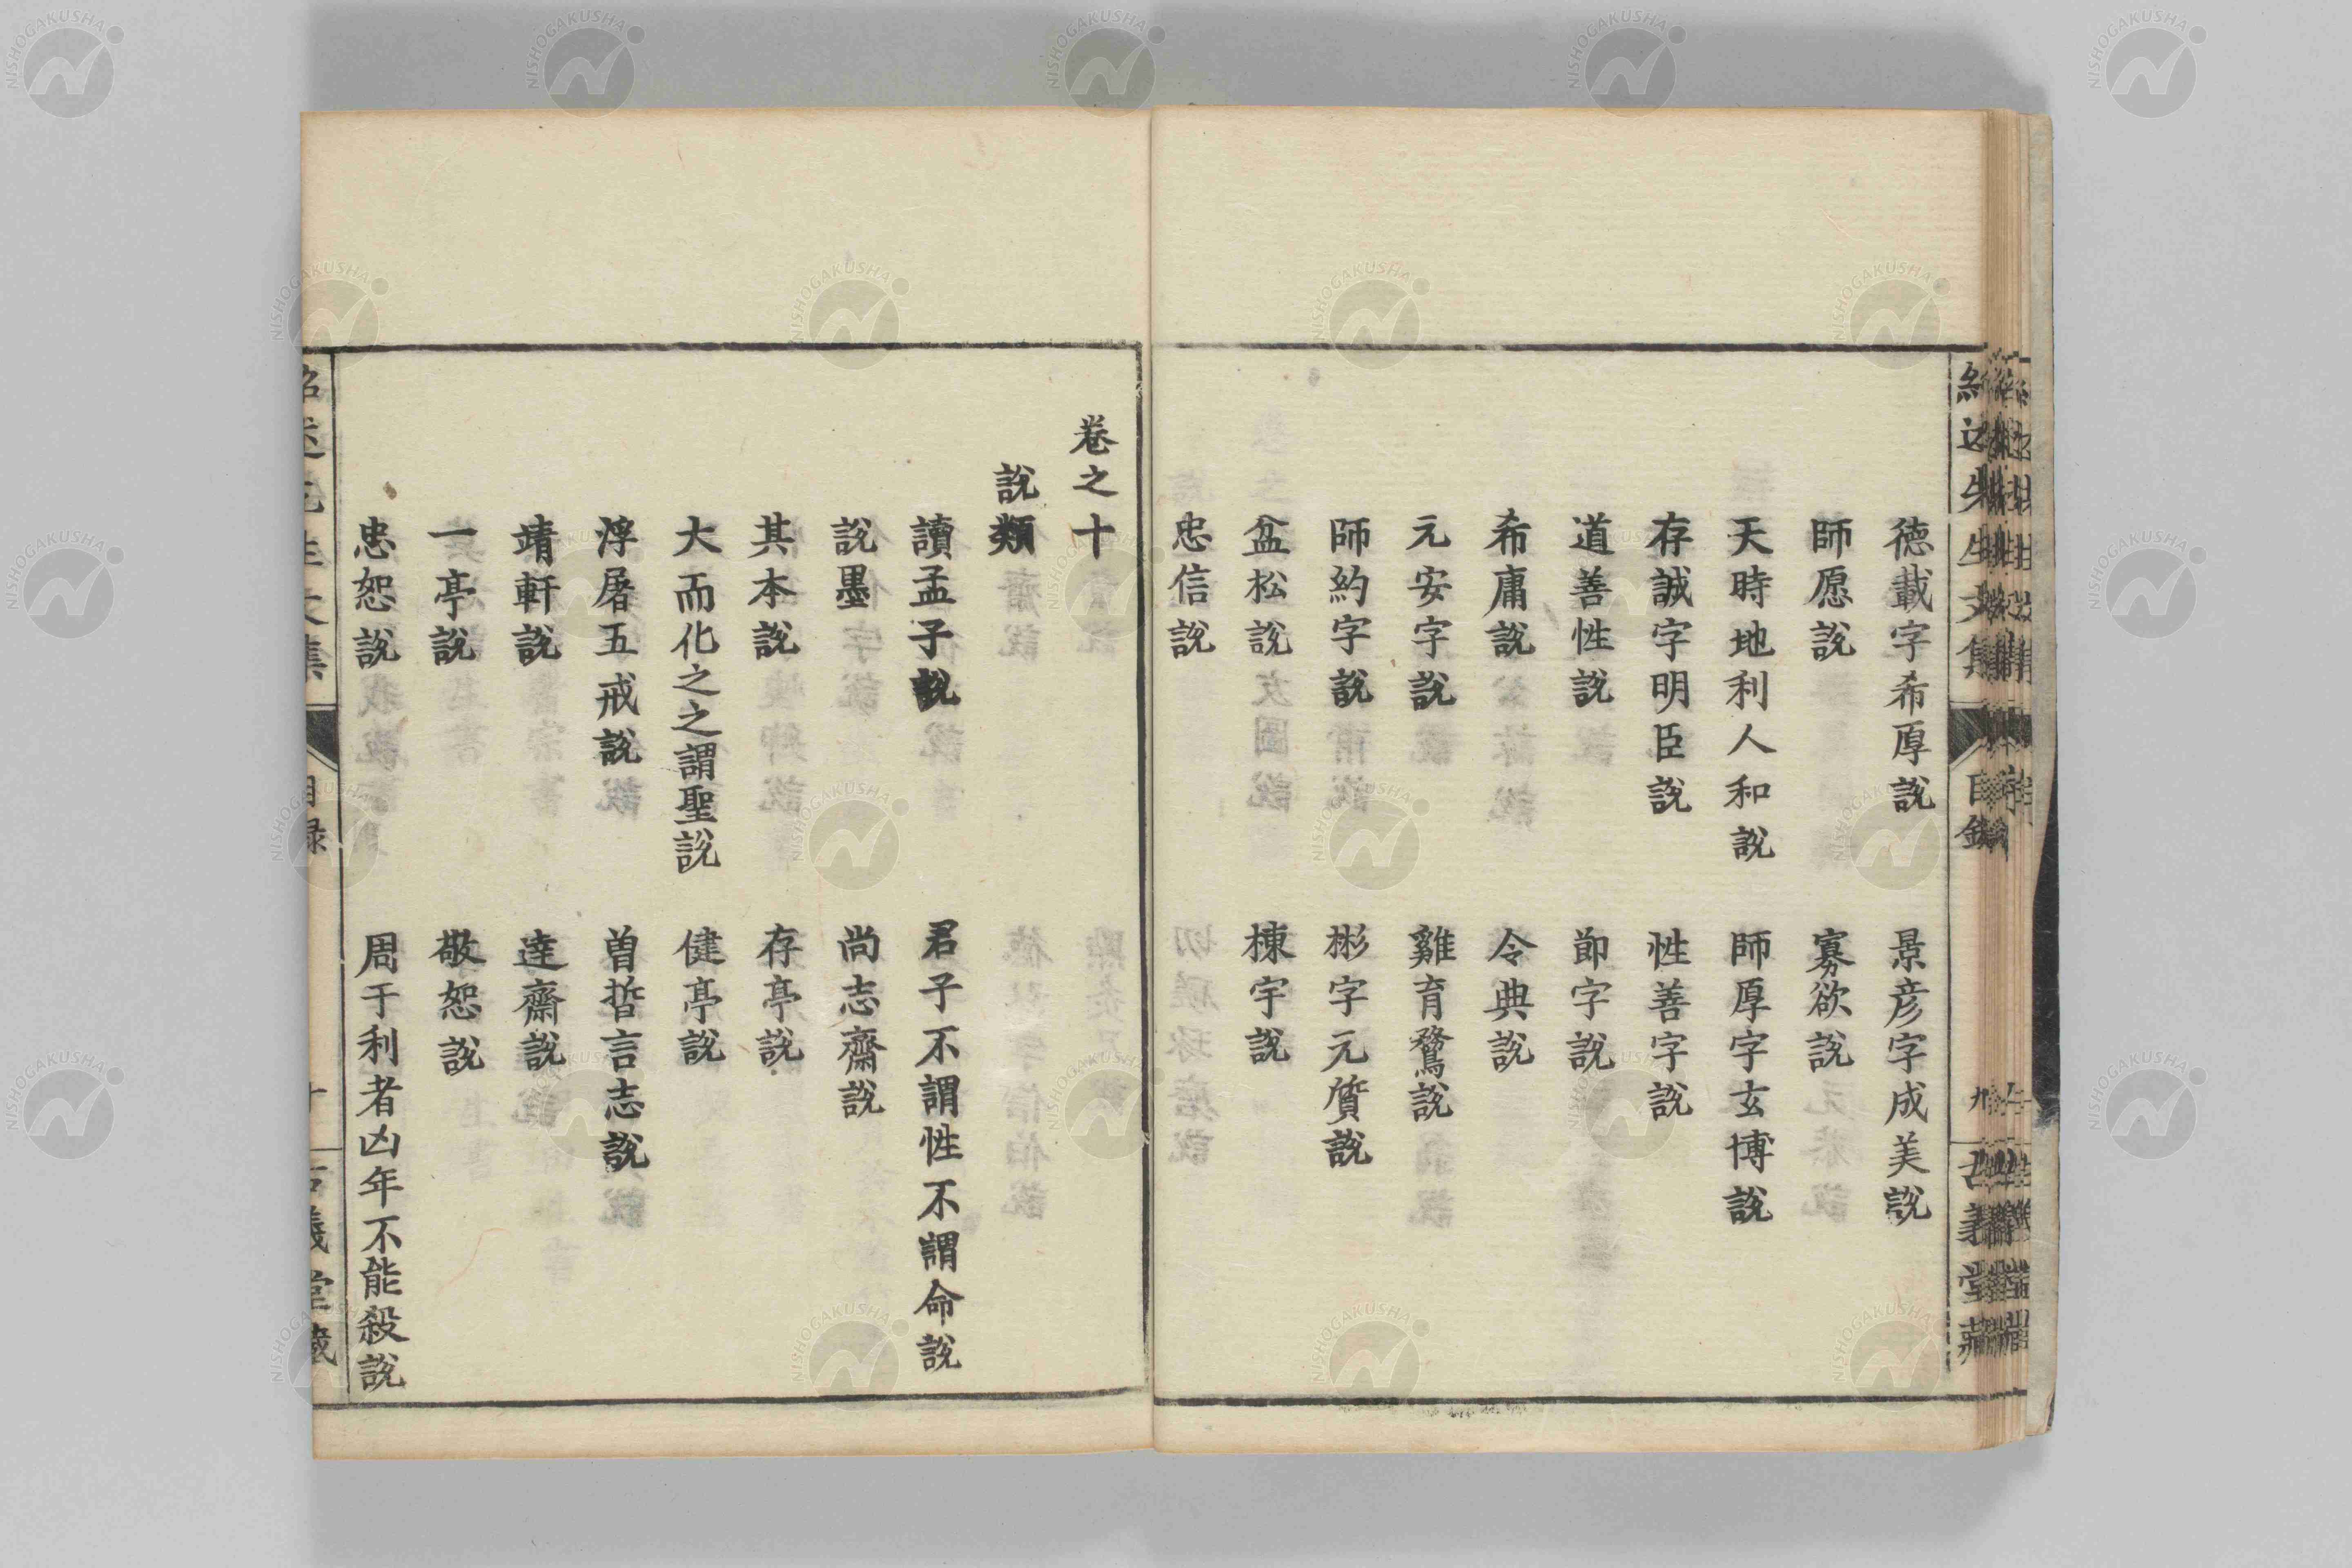 德載字希厚說　景彦字成美說
師愿說　寡欲說
天時地利人和說　師厚字玄博說
存誠字明臣說　性善字說
道善性說　節字說
希庸說　令典說
元安字說　雞育鶩說
師約字說　彬字元質說
盆松說　棟宇說
忠信說
卷之十
說類
讀孟子說　君子不謂性不謂命說
說墨　尚志齋說
其本說　存亭說
大而化之之謂聖說　健亭說
浮屠五戒說　曽晳言志說
靖軒說　達齋說
一亭說　敬恕說
忠恕說　周于利者凶年不能殺說
目錄
NISHOGAKUSHA